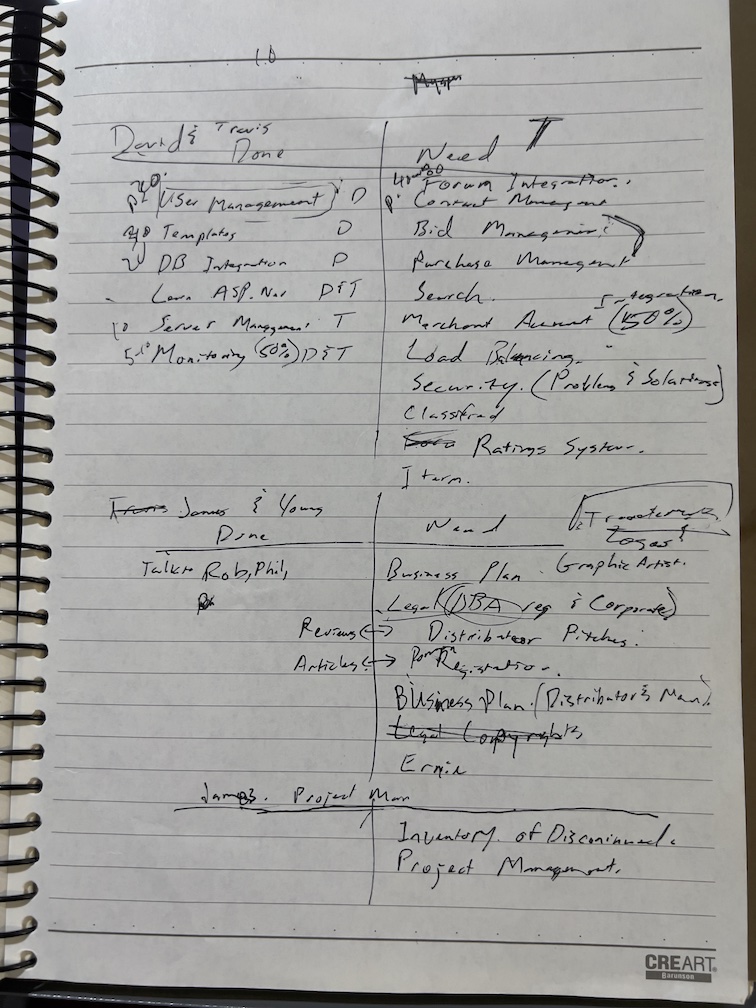 1.0
David & Travis
Done
Need
T
User Management D
Templates D
DB Integration D
ASP.Net D&T
Server Management T
Monitoring (50%) D&T
Forum Integration.
Contact Managment
Bid Managmint
Purchase Managemt
Search.
Merchant Account Integration (50%)
Load Balancing.
Security. (Problems & Solutions)
Classified
Ratings System.
James & Young
Done
Need
Talk to Rob, Phil,
Business Plan. Graphic Artist.
Legal (DBA reg & Corporate)
Reviews Distributor Pitches.
Articles Registration.
Business Plan. (Distributor & Man.)
Legal Copyrights
Project Man
Inventory of Discontinued.
Project Management.
CREART
Baronson